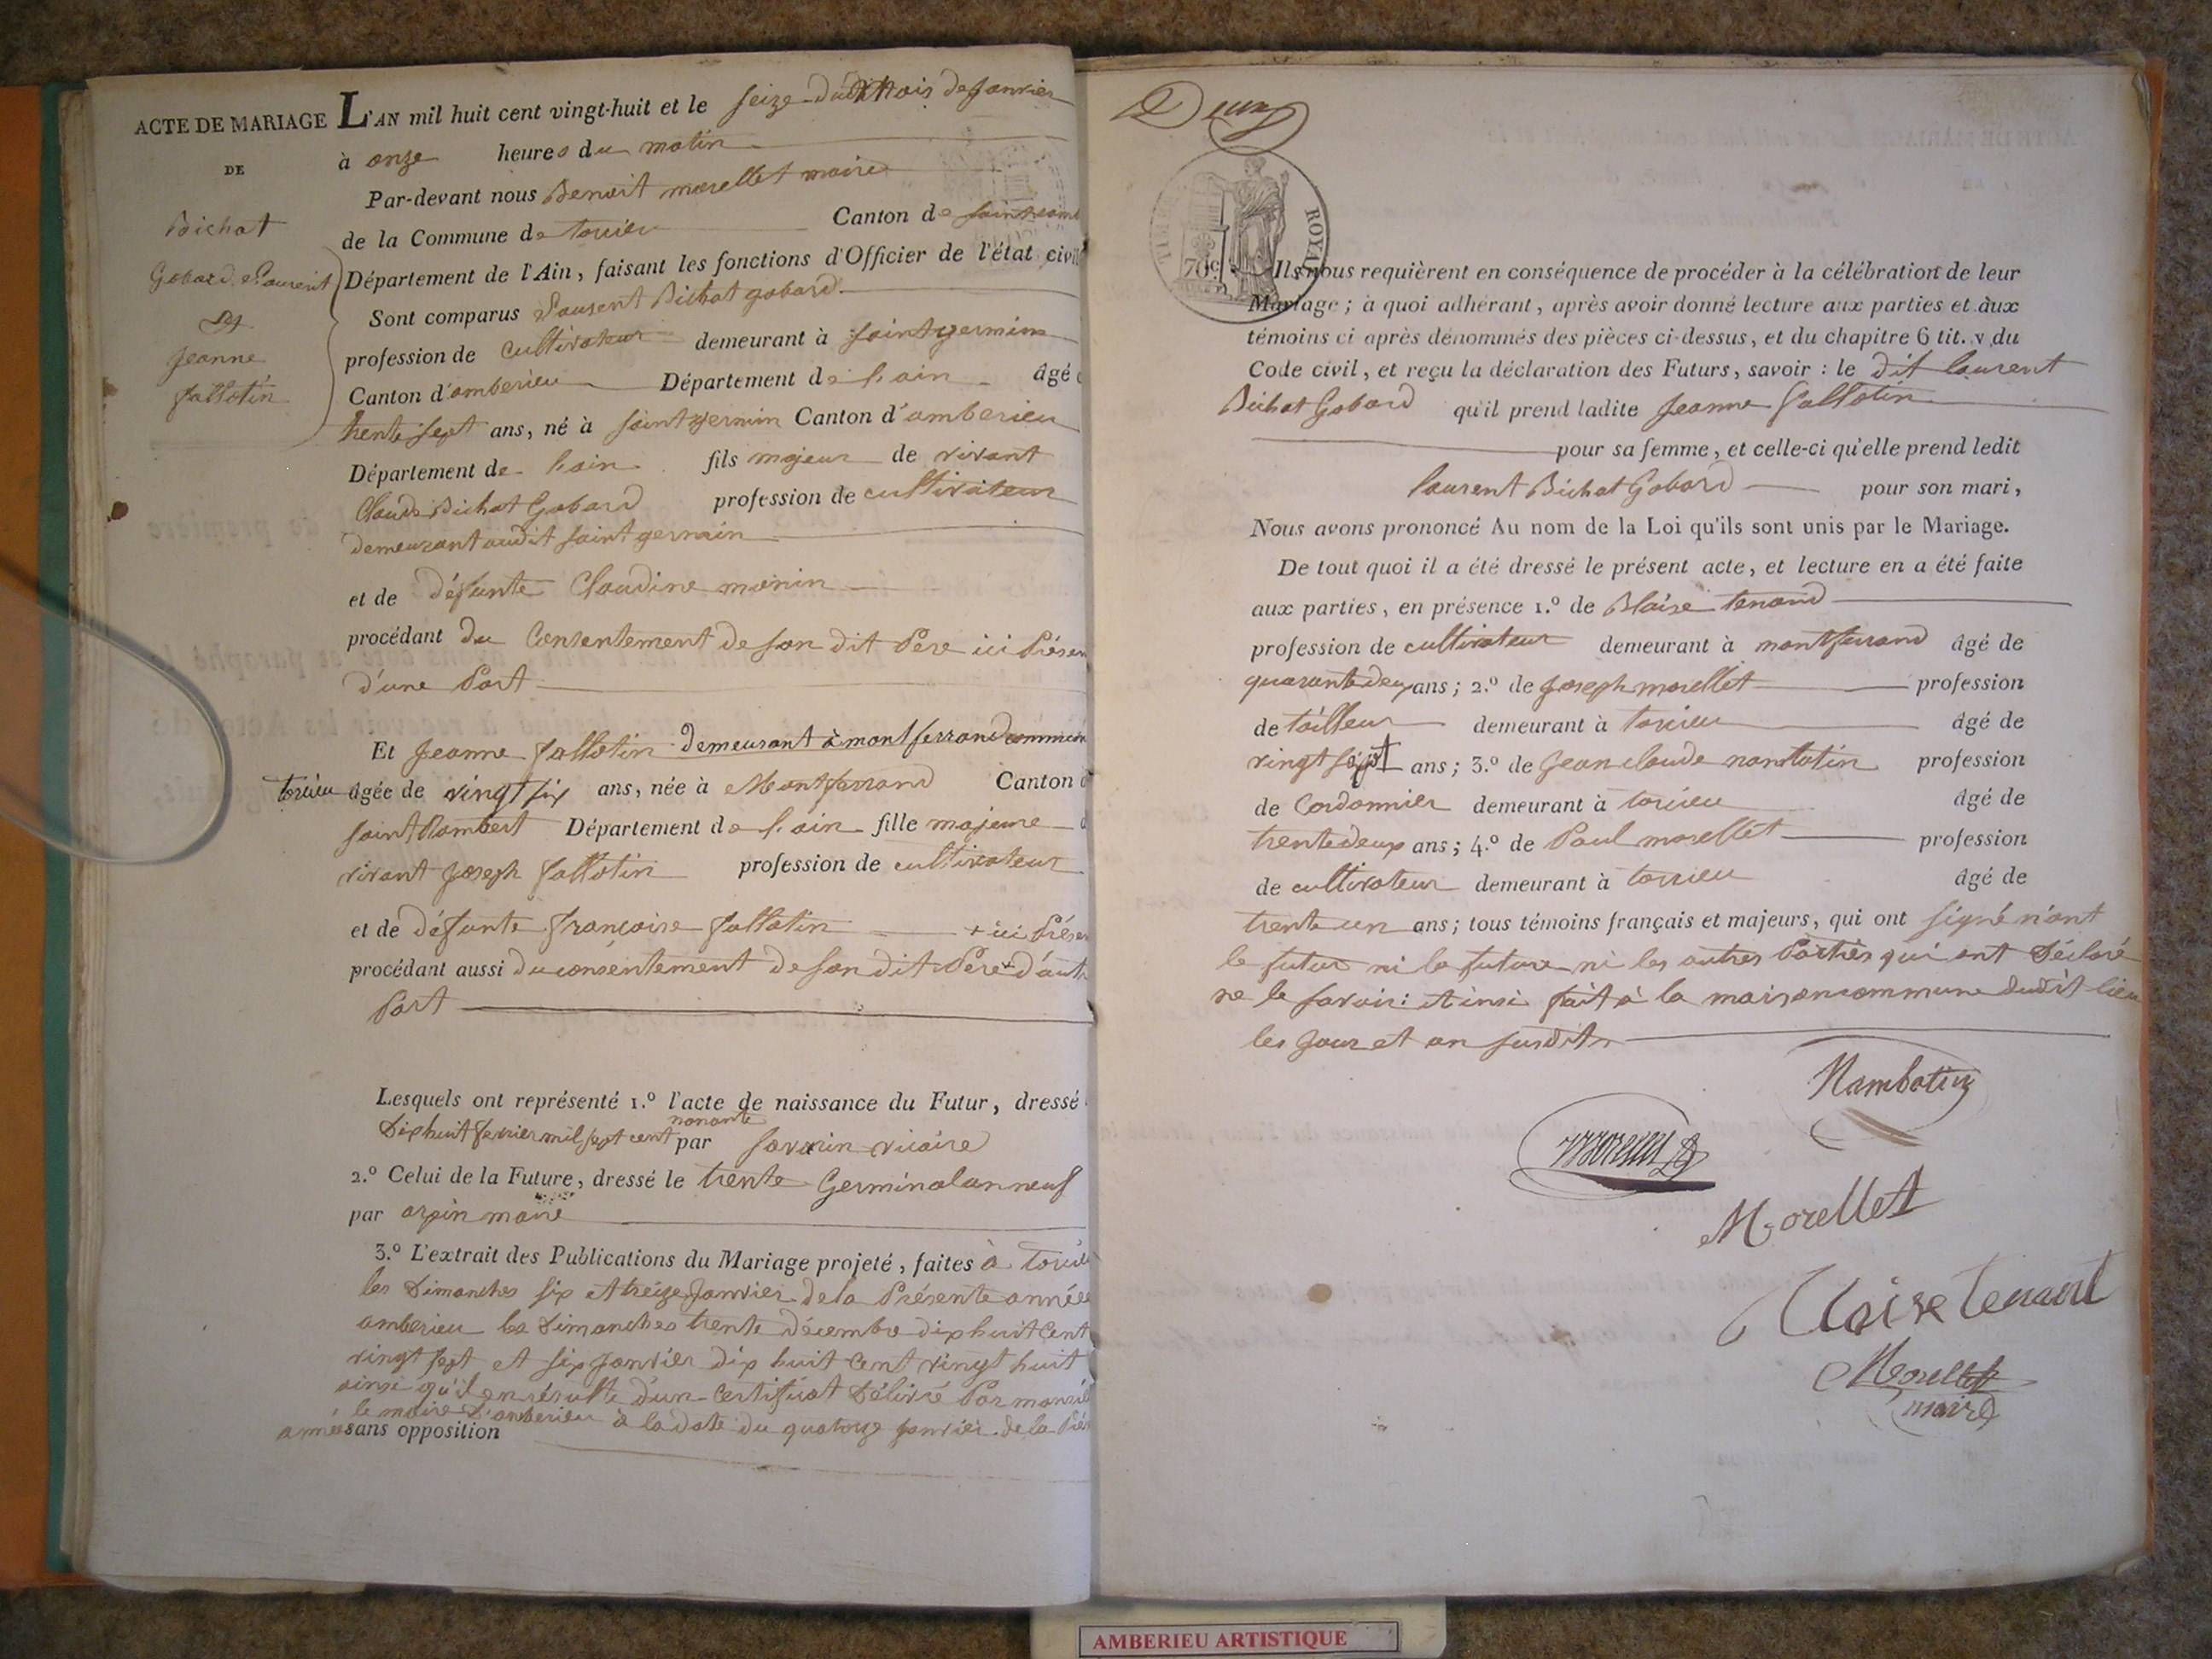 ACTE DE MARIAGE
DE
Bichat
Gobard Laurent
Et
Jeanne
fallotin
L'AN mil huit cent vingt-huit et le seize dudit Mois de Janvier
à onze heures du matin
Par-devant nous Benoit morellet maire
de la Commune de torcieu Canton de saint ramb
Département de l'Ain, faisant les fonctions d'Officier de l'état civil
Sont comparus Laurent Bichat gobard
profession de Cultivateur demeurant à saint germain
Canton d'amberieu Département de l'ain âgé
trente sept ans, né à saint germain Canton d'amberieu
Département de l'ain fils majeur de vivant
Claude Bichat Gobard profession de cultivateur
demeurant audit saint germain
et de défunte Claudine monin
procédant du Consentement de son dit Pere ici Présen
d'une Part
Et Jeanne fallotin demeurant à montferrand
torcieu agée de vingt six ans, née à Montferrand Canton
saint Rambert Département de l'ain fille majeure
vivant Joseph fallotin profession de cultivateur
et de défunte françoise fallotin + ici Présen
procédant aussi du consentement de son dit Père + d'autr
Part
Lesquels ont représenté 1.º l'acte de naissance du Futur, dressé
nonante
Dix huit fevrier mil sept cent par savarin vicaire
2.º Celui de la Future, dressé le trente Germinal an neuf
par arpin maire
3.º L'extrait des Publications du Mariage projeté, faites à torcieu
les Dimanches six et treize Janvier de la Présente année
amberieu les Dimanches trente décembre dix huit Cent
vingt sept et six Janvier dix huit Cent vingt huit
ainsi qu'il en résulte d'un Certificat Délivré Par
le maire d'amberieu à la date du quatorze Janvier de la Pré
année sans opposition
Deux
ROYAL
70c
Ils nous requièrent en conséquence de procéder à la célébration de leur
Mariage ; à quoi adhérant, après avoir donné lecture aux parties et aux
témoins ci après dénommés des pièces ci-dessus, et du chapitre 6 tit. v du
Code civil, et reçu la déclaration des Futurs, savoir : le dit laurent
Bichat Gobard qu'il prend ladite Jeanne fallotin
pour sa femme, et celle-ci qu'elle prend ledit
laurent Bichat Gobard pour son mari,
Nous avons prononcé Au nom de la Loi qu'ils sont unis par le Mariage.
De tout quoi il a été dressé le présent acte, et lecture en a été faite
aux parties, en présence 1.º de Blaise tenand
profession de cultivateur demeurant à montferrand âgé de
quarante deux ans ; 2.º de Joseph morellet profession
de tailleur demeurant à torcieu âgé de
vingt sept ans ; 3.º de Jean claude nambotin profession
de Cordonnier demeurant à torcieu âgé de
trente deux ans ; 4.º de Paul morellet profession
de cultivateur demeurant à torcieu âgé de
trente un ans ; tous témoins français et majeurs, qui ont signé n'ont
le futur ni la future ni les autres Parties qui ont Déclaré
ne le savoir : Ainsi fait à la maison commune dudit lieu
les Jour et an susdits
Nambotin
Morellet
Tenant
Morellet
maire
AMBERIEU ARTISTIQUE